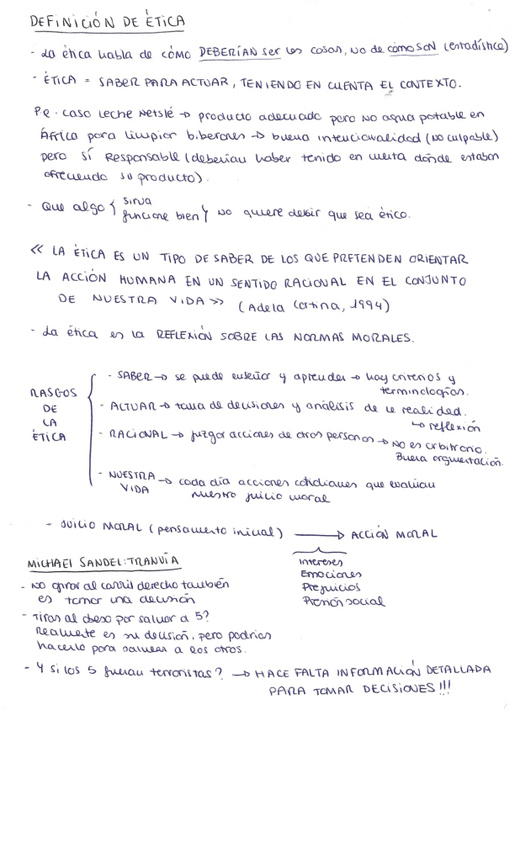 DEFINICIÓN DE ÉTICA
- La ética habla de cómo DEBERÍAN ser las cosas, no de como SON (estadística)
- ÉTICA = SABER PARA ACTUAR, TENIENDO EN CUENTA EL CONTEXTO.
P.e. caso Leche Netslé → producto adecuado pero NO agua potable en
África para limpiar biberones → buena intencionalidad (no culpable)
pero SÍ Responsable (deberían haber tenido en cuenta dónde estaban
ofreciendo su producto).
- Que algo { sirva
funcione bien } no quiere decir que sea ético.
<< LA ÉTICA ES UN TIPO DE SABER DE LOS QUE PRETENDEN ORIENTAR
LA ACCIÓN HUMANA EN UN SENTIDO RACIONAL EN EL CONJUNTO
DE NUESTRA VIDA >> (Adela Cortina, 1994)
- La ética es la REFLEXIÓN SOBRE LAS NORMAS MORALES.
RASGOS DE LA ÉTICA
- SABER → se puede enseñar y aprender → hay criterios y
terminologías.
- ACTUAR → toma de decisiones y análisis de la realidad.
↳ reflexión
- RACIONAL → juzgar acciones de otras personas → No es arbitrario.
Buena argumentación.
- NUESTRA VIDA → cada día acciones cotidianas que evalúan
nuestro juicio moral
- JUICIO MORAL (pensamiento inicial) → ACCIÓN MORAL
Intereses
Emociones
Prejuicios
Presión social
MICHAEL SANDEL: TRANVÍA
- No girar al carril derecho también
es tomar una decisión
- Tiras al obeso por salvar a 5?
Realmente es su decisión, pero podrías
hacerlo para salvar a los otros.
- Y si los 5 fueran terroristas? → HACE FALTA INFORMACIÓN DETALLADA
PARA TOMAR DECISIONES!!!